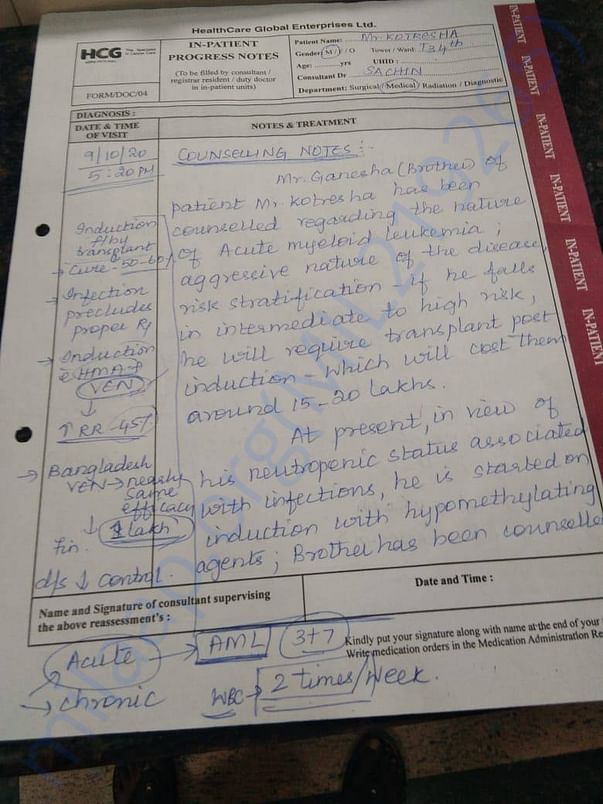 HealthCare Global Enterprises Ltd.
HCG
IN-PATIENT
PROGRESS NOTES
(To be filled by consultant /
registrar resident / duty doctor
in in-patient units)
FORM/DOC/04
Patient Name: Mr. KOTRESHA
Gender: M / F / O Tower / Ward:
Age: yrs UHID:
Consultant Dr SACHIN
Department: Surgical / Medical / Radiation / Diagnostic
DIAGNOSIS:
DATE & TIME
OF VISIT
NOTES & TREATMENT
9/10/20
5:20 PM
COUNSELLING NOTES:-
Mr. Ganesha (Brother) of
patient Mr. Kotresha has been
counselled regarding the nature
of Acute myeloid leukemia;
aggressive nature of the disease
risk stratification - if he falls
in intermediate to high risk,
he will require transplant post
induction - which will cost them
around 15-20 lakhs.
At present, in view of
his neutropenic status associated
with infections, he is started on
induction with hypomethylating
agents; Brother has been counselle
Induction
f/by
transplant
→ Cure - 50-60%
→ Infection
precludes
proper Rx
→ Induction
c HMA +
VEN
↓
↑ RR - 45%
→ Bangladesh
VEN → nearly
same
efficacy
↓ 1 lakh
fin.
d/s ↓ control.
Name and Signature of consultant supervising
the above reassessment's :
Date and Time :
Kindly put your signature along with name at the end of your
Write medication orders in the Medication Administration Re
Acute → AML 3+7
→ chronic
WBC → 2 times/week.
IN-PATIENT
IN-PATIENT
IN-PATIENT
IN-PATIENT
IN-PATIENT
IN-PATIENT